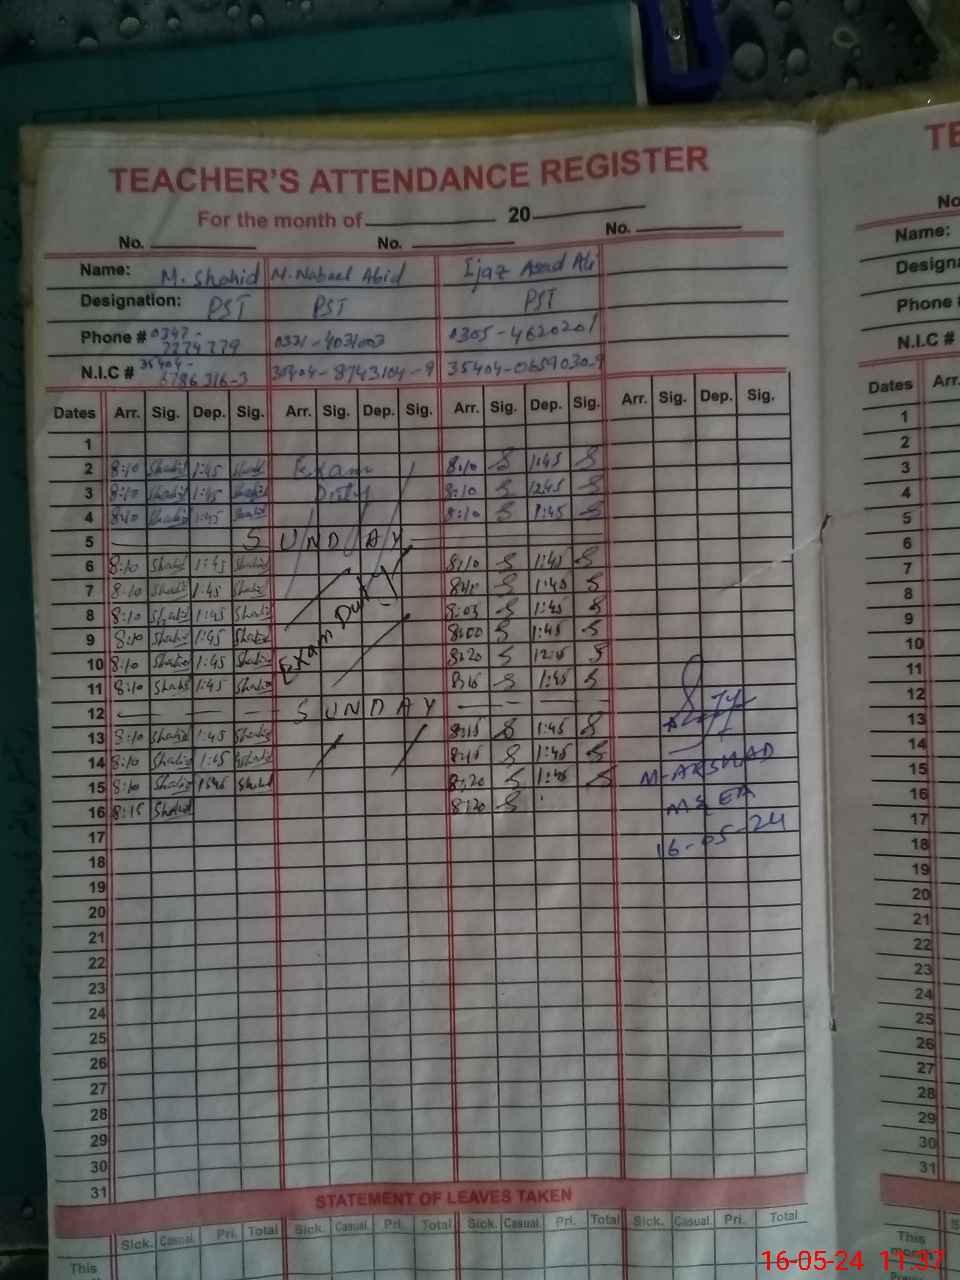 TEACHER'S ATTENDANCE REGISTER
For the month of 20
No. No. No.
Name: M. Shahid M. Nabeel Abid Ijaz Asad Ali
Designation: PST PST PST
Phone # 0347- 0305-4620201
N.I.C # 35404- 35404-8743104-9 35404-0659030-9
6786316-3
Dates Arr. Sig. Dep. Sig. Arr. Sig. Dep. Sig. Arr. Sig. Dep. Sig. Arr. Sig. Dep. Sig.
1
2 8:10 Shahid 1:45 Shahid Exam 8:10 1:45
3 8:10 Shahid 1:45 Shahid Duty 8:10 12:45
4 8:10 Shahid 1:45 Shahid 8:10 1:45
5 SUNDAY
6 8:10 Shahid 1:45 Shahid 8:10 1:45
7 8:10 Shahid 1:45 Shahid 1:45
8 8:10 Shahid 1:45 Shahid Exam Duty 8:05 1:45
9 8:10 Shahid 1:45 Shahid 8:00 1:45
10 8:10 Shahid 1:45 Shahid 8:20
11 8:10 Shahid 1:45 Shahid 1:45
12 SUNDAY
13 8:10 Shahid 1:45 Shahid 8:15 1:45
14 8:10 Shahid 1:45 Shahid 8:15 1:45
15 8:10 Shahid 1:45 Shahid 8:20 1:45 M-ARSHAD
16 8:15 Shahid 8:20 MEA
17
18 16-05-24
19
20
21
22
23
24
25
26
27
28
29
30
31
STATEMENT OF LEAVES TAKEN
Sick. Casual. Pri. Total Sick. Casual. Pri. Total Sick. Casual. Pri. Total Sick. Casual. Pri. Total
This
TE
No
Name:
Designa
Phone #
N.I.C #
Dates Arr.
1
2
3
4
5
6
7
8
9
10
11
12
13
14
15
16
17
18
19
20
21
22
23
24
25
26
27
28
29
30
31
S
This
month
16-05-24 11:37